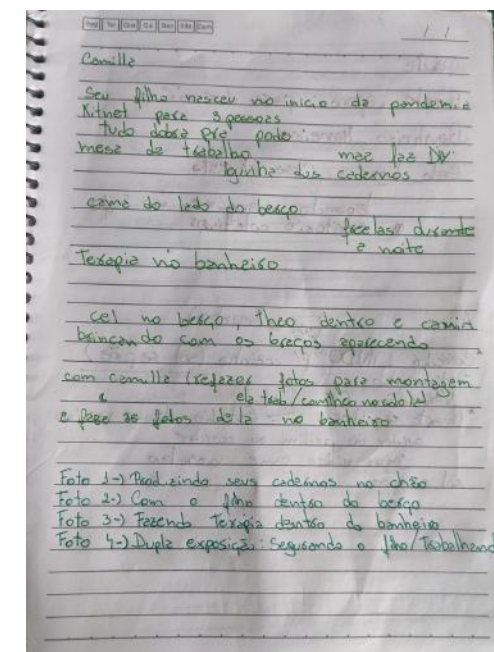 Seg Ter Qua Qui Sex Sáb Dom
/ /
Camilla
Seu filho nasceu no inicio da pandemia
Kitnet para 3 pessoas
tudo dobra pra poder
mesa de trabalho mae faz DIY
lojinha dos cadernos
cama do lado do berço
freelas durante
a noite
Terapia no banheiro
cel no berço, theo dentro e camila
brincando com os braços aparecendo
com camilla (refazer fotos para montagem
ela trab/com filho no colo)
e fazer as fotos dela no banheiro
Foto 1-) Produzindo seus cadernos no chão
Foto 2-) Com o filho dentro do berço
Foto 3-) Fazendo Terapia dentro do banheiro
Foto 4-) Dupla exposição: Segurando o filho/Trabalhand